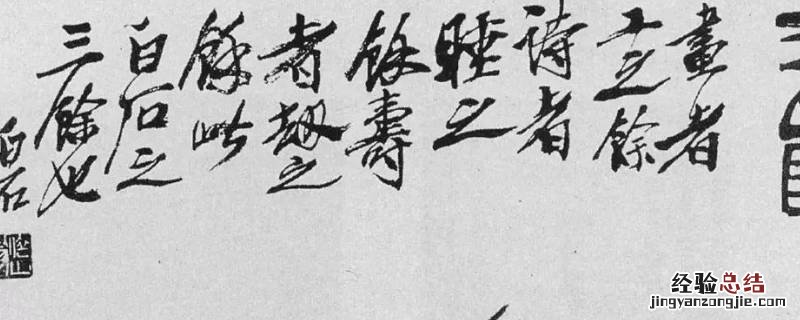 畫者
工之餘
詩者
睡之
餘壽
者劫之
餘此
白石之
三餘也
白石
经验总结
jingyanzongjie.com